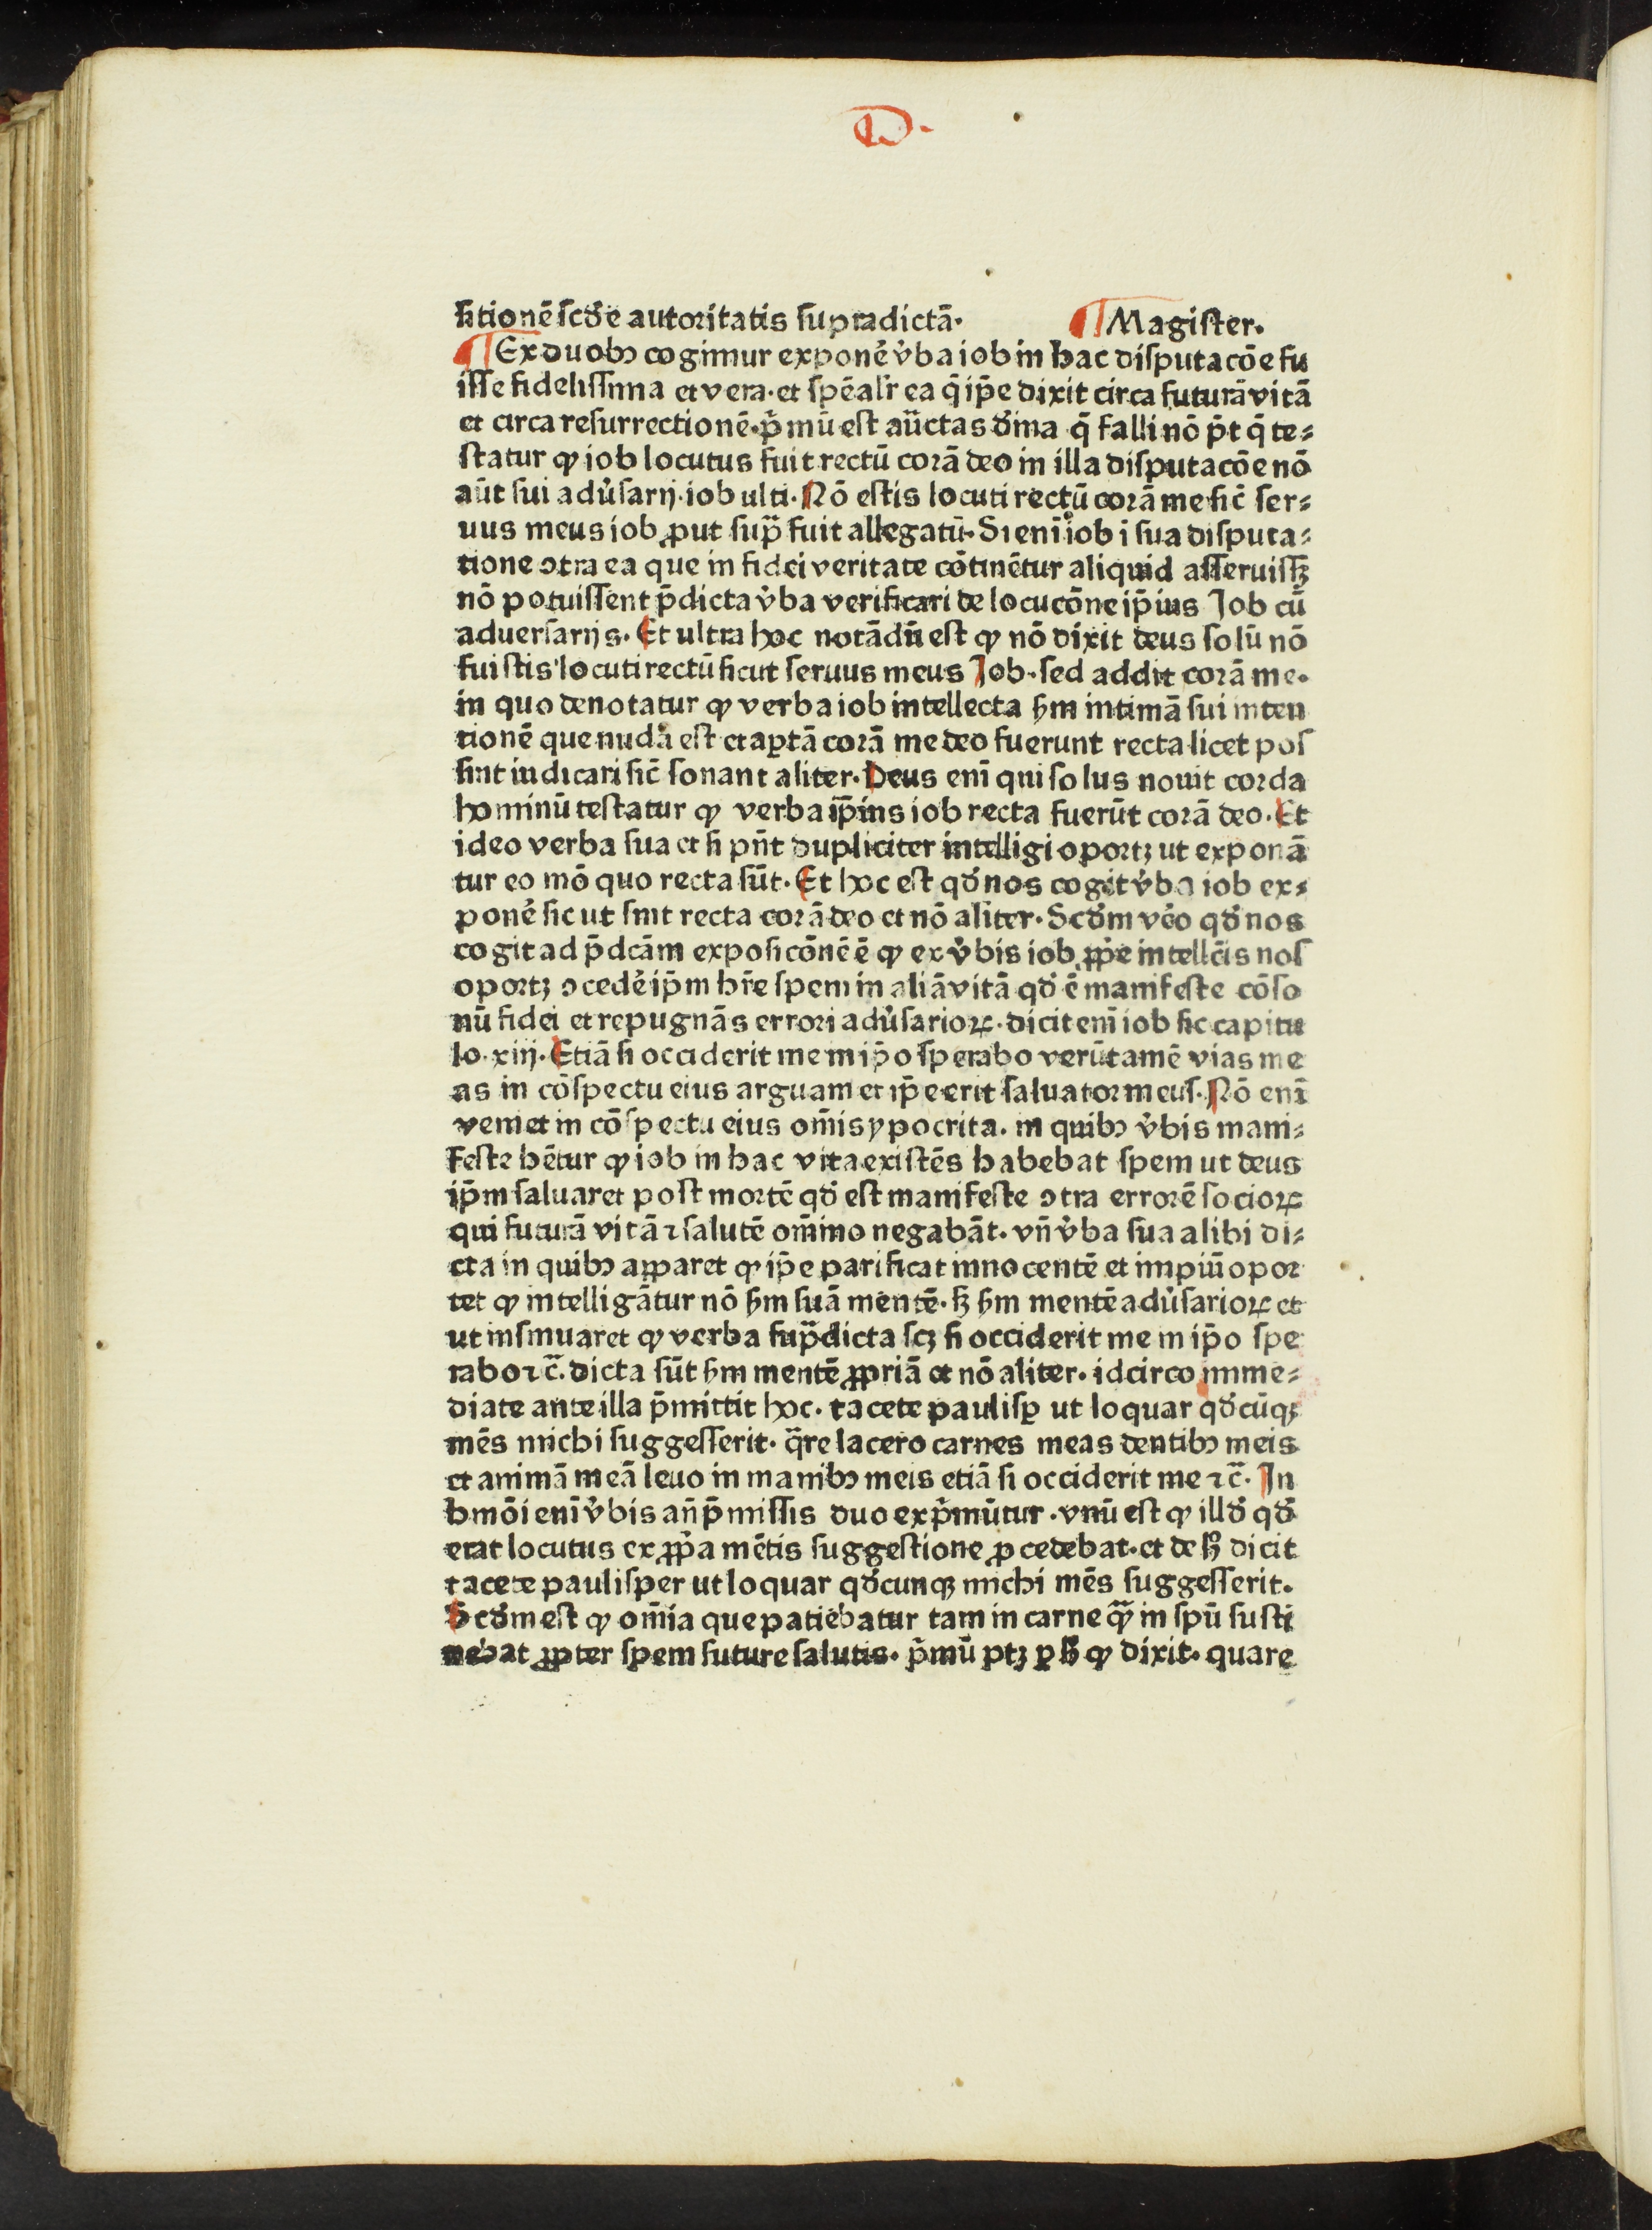 D.
sitionē scd̓e autoritatis supradictā. ¶ Magister.
¶ Ex duobꝰ cogimur expone᷑ v̓ba iob in hac disputacōe fu
isse fidelissima et vera. et spēalr̄ ea q̄ ip̄e dixit circa futurā vitā
et circa resurrectionē. p̓mū est auc̄tas d̓ina q̄ falli nō p̄t q̄ te⸗
statur ꝙ iob locutus fuit rectū corā deo in illa disputacōe nō
aūt sui adu̓sarij. iob ulti. Nō estis locuti rectū corā me sic̄ ser⸗
uus meus iob ꝓut sup̄ fuit allegatū. Si enī iob i sua disputa⸗
tione ꝯtra ea que in fidei veritate cōtinētur aliquid asseruissꝫ
nō potuissent p̄dicta v̓ba verificari de locucōne ip̄ius Job cū
aduersarijs. Et ultra hoc notādū est ꝙ nō dixit deus solū nō
fuistis locuti rectū sicut seruus meus Job. sed addit corā me.
in quo denotatur ꝙ verba iob intellecta ẜm intimā sui inten
tionē que nuda est et aꝑtā corā me deo fuerunt recta licet pos
sint iudicari sic̄ sonant aliter. Deus enī qui solus nouit corda
hominū testatur ꝙ verba ip̄ius iob recta fuerūt corā deo. Et
ideo verba sua et si pn̄t dupliciter intelligi oportꝫ ut exponā
tur eo mō quo recta sūt. Et hoc est qd̓ nos cogit v̓ba iob ex⸗
pone᷑ sic ut sint recta corā deo et nō aliter. Scd̓m ve᷑o qd̓ nos
cogit ad p̄dcām exposicōnē ē ꝙ ex v̓bis iob ꝓpe᷑ intellc̄is nos
oportꝫ ꝯcede᷑ ip̄m hr̄e spem in aliā vitā qd̓ ē manifeste cōso
nū fidei et repugnās errori adu̓sarioꝝ. dicit enī iob sic capitu
lo. xiij. Etiā si occiderit me in ip̄o sperabo verūtamē vias me
as in cōspectu eius arguam et ip̄e erit saluator meus. Nō enī
veniet in cōspectu eius om̄is ypocrita. in quibꝰ v̓bis mani⸗
feste hētur ꝙ iob in hac vita existēs habebat spem ut deus
ip̄m saluaret post mortē qd̓ est manifeste ꝯtra errorē socioꝝ
qui futurā vitā ⁊ salutē om̄ino negabāt. vn̄ v̓ba sua alibi di⸗
cta in quibꝰ apparet ꝙ ip̄e parificat innocentē et impiū opor
tet ꝙ intelligātur nō ẜm suā mentē. sꝫ ẜm mentē adu̓sarioꝝ et
ut insinuaret ꝙ verba sup̄dicta scꝫ si occiderit me in ip̄o spe
rabo ⁊c̄. dicta sūt ẜm mentē ꝓpriā et nō aliter. idcirco imme⸗
diate ante illa p̄mittit hoc. tacete paulisꝑ ut loquar qd̓cūqꝫ
mēs michi suggesserit. q̄re lacero carnes meas dentibꝰ meis
et animā meā leuo in manibꝰ meis etiā si occiderit me ⁊c̄. In
hmōi enī v̓bis an̄p̄missis duo exp̓mūtur. vnū est ꝙ illd̓ qd̓
erat locutus ex ꝓp̓a mētis suggestione ꝓcedebat. et de hͦ dicit
tacete paulisper ut loquar qd̓cunqꝫ michi mēs suggesserit.
Scd̓m est ꝙ om̄ia que patiebatur tam in carne qᷓ in spū susti
nebat ꝓpter spem future salutis. p̓mū ptꝫ ꝑ hͦ ꝙ dixit. quare